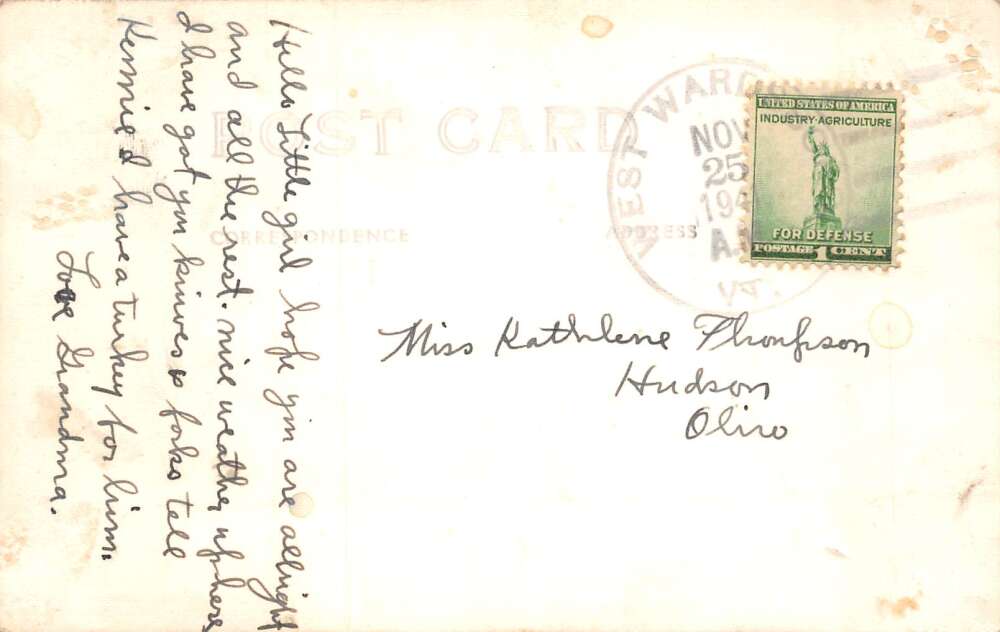 POST CARD
CORRESPONDENCE
ADDRESS
Hello Little girl hope you are allright
and all the rest. nice weather up here
I have got you knives & forks tell
Kennie I have a turkey for him.
Love Grandma.
WEST WARD
NOV
25
194
A.M
VT.
UNITED STATES OF AMERICA
INDUSTRY · AGRICULTURE
FOR DEFENSE
POSTAGE 1 CENT
Miss Kathlene Thompson
Hudson
Ohio